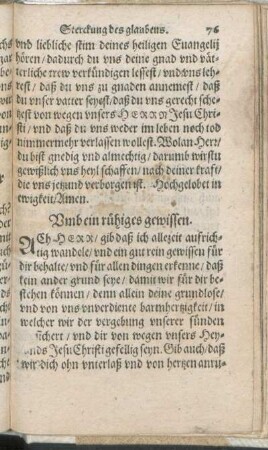 Sterckung des glaubens. 76
vnd liebliche stim deines heiligen Euangelij
hören / dadurch du vns deine gnad vnd våt-
terliche trew verkündigen lessest / vnd vns leh-
rest / daß du vns zu gnaden annemest / daß
du vnser vatter seyest / daß du vns gerecht sche-
tzest von wegen vnsers HERRN Jesu Chri-
sti / daß du vns weder im leben noch tod
nimmermehr verlassen wollest. Wolan Herr /
du bist gnedig vnd almechtig / darumb wirstu
gewißlich vns heyl schaffen / nach deiner krafft /
die vns jetzund verborgen ist. Hochgelobet in
ewigkeit / Amen.
Vmb ein rühiges gewissen.
ACh HERR / gib daß ich allezeit auffrich-
tig wandele / vnd ein gut rein gewissen für
dir behalte / vnd für allen dingen erkenne / daß
kein ander grund seye / damit wir für dir be-
stehen können / denn allein deine grundlose /
vnd von vns vnverdiente barmhertzigkeit / in
welcher wir der vergebung vnserer sünden
sichert / vnd dir von wegen vnsers Hey-
nds Jesu Christi gefellig seyn. Gib auch / daß
wir dich ohn vnterlaß vnd von hertzen anru-